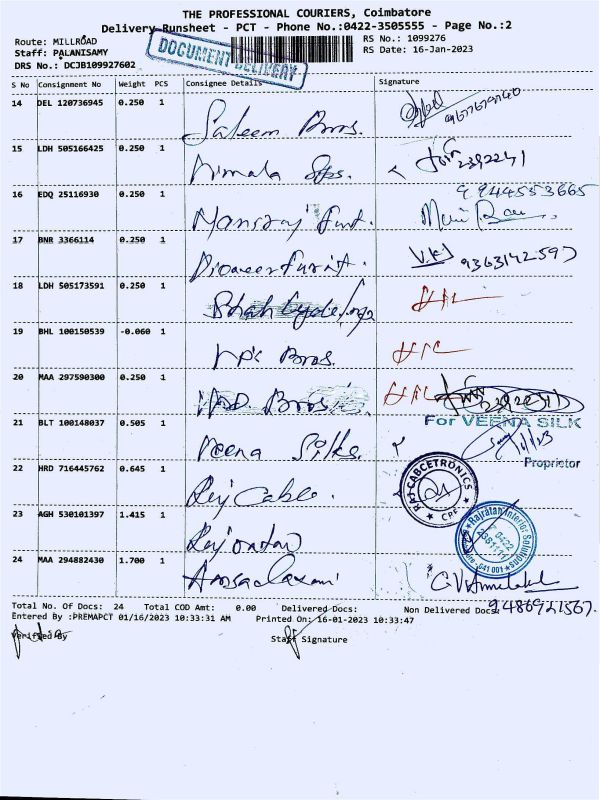 THE PROFESSIONAL COURIERS, Coimbatore
Delivery Runsheet - PCT - Phone No.:0422-3505555 - Page No.:2
Route: MILLROAD
RS No.: 1099276
Staff: PALANISAMY
RS Date: 16-Jan-2023
DRS No.: DCJB109927602
DOCUMENT DELIVERY
S No Consignment No Weight PCS Consignee Details Signature
14 DEL 120736945 0.250 1 Saleem Bros.
15 LDH 505166425 0.250 1 Nirmala 2392241
9944553665
16 EDQ 25116930 0.250 1
17 BNR 3366114 0.250 1 Pioneer Furnit. 9363142597
18 LDH 505173591 0.250 1
19 BHL 100150539 -0.060 1 Bros.
20 MAA 297590300 0.250 1 Bros 2392241
For VEENA SILK
21 BLT 100148037 0.505 1 Veena Silks
Proprietor
22 HRD 716445762 0.645 1 Raj Cable.
RAJ CABCETRONICS
CPE
23 AGH 530101397 1.415 1
Rajratan Interior Solutions
0422
2381111
641 001
24 MAA 294882430 1.700 1
Total No. Of Docs: 24 Total COD Amt: 0.00 Delivered Docs: Non Delivered Docs:
9486921567.
Entered By :PREMAPCT 01/16/2023 10:33:31 AM Printed On: 16-01-2023 10:33:47
Verified By Staff Signature